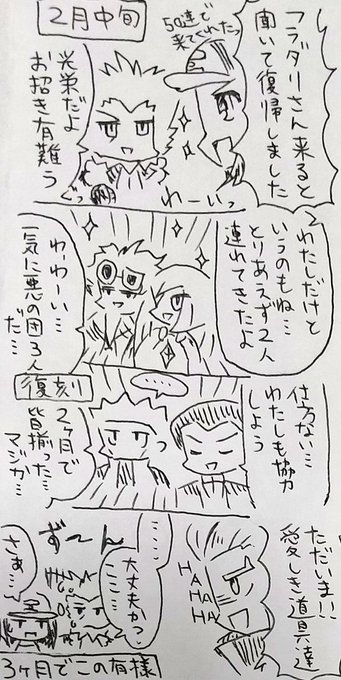 2月中旬
フラダリさん来ると
聞いて復帰しました
50連で
来てくれたっ
光栄だよ
お招き有難う
わーいっ
わたしだけと
いうのもね…
とりあえず2人
連れてきたよ
わ、わーい…
一気に悪の団3人
だ…
復刻
仕方ない…
わたしも協力
しよう
……
2ヶ月で
皆揃った…
マジか…
ただいま!!
愛しき道具達
HA
HA
HA
HA
……
大丈夫か?
ここ…
ず〜ん
さぁ…
3ヶ月でこの有様